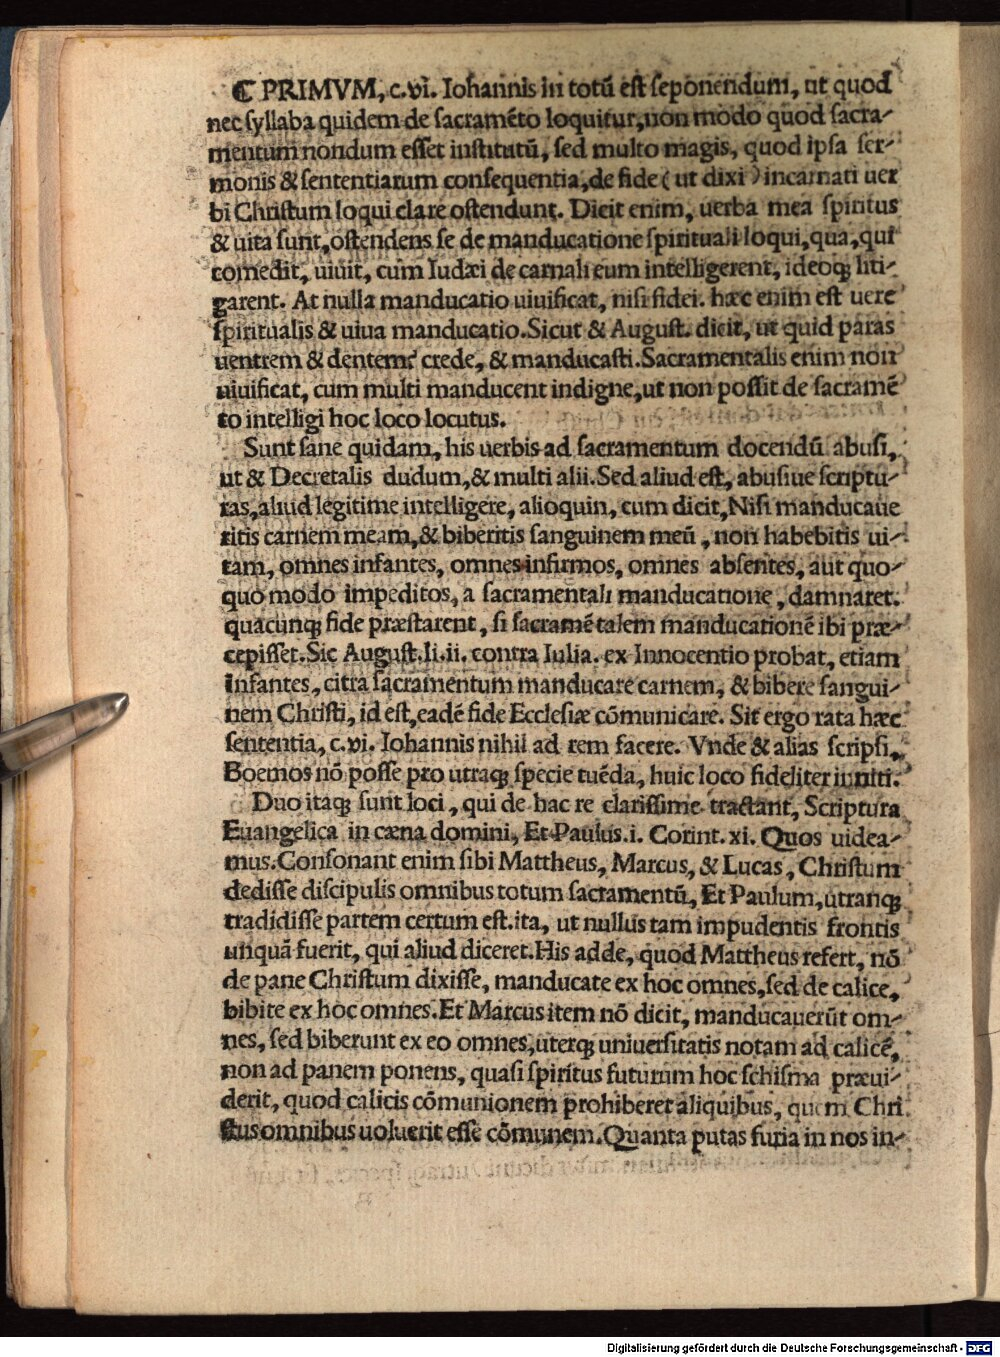 ¶ PRIMVM, c.vi. Iohannis in totũ est seponendum, ut quod
nec syllaba quidem de sacramẽto loquitur, non modo quod sacra-
mentum nondum esset institutũ, sed multo magis, quod ipsa ser-
monis & sententiarum consequentia, de fide ( ut dixi ) incarnati uer
bi Christum loqui clare ostendunt. Dicit enim, uerba mea spiritus
& uita sunt, ostendens se de manducatione spirituali loqui, qua, qui
comedit, uiuit, cum Iudæi de carnali eum intelligerent, ideoq; liti-
garent. At nulla manducatio uiuificat, nisi fidei. hæc enim est uere
spiritualis & uiua manducatio. Sicut & August. dicit, ut quid paras
uentrem & dentem? crede, & manducasti. Sacramentalis enim non
uiuificat, cum multi manducent indigne, ut non possit de sacramẽ
to intelligi hoc loco locutus.
Sunt sane quidam, his uerbis ad sacramentum docendũ abusi,
ut & Decretalis dudum, & multi alii. Sed aliud est, abusiue scriptu-
ras, aliud legitime intelligere, alioquin, cum dicit, Nisi manducaue
ritis carnem meam, & biberitis sanguinem meũ, non habebitis ui-
tam, omnes infantes, omnes infirmos, omnes absentes, aut quo-
quo modo impeditos, a sacramentali manducatione, damnaret.
quacunq; fide præstarent, si sacramẽtalem manducationẽ ibi præ-
cepisset. Sic August. li.ii. contra Iulia. ex Innocentio probat, etiam
infantes, citra sacramentum manducare carnem, & bibere sangui-
nem Christi, id est, eadẽ fide Ecclesiæ cõmunicare. Sit ergo rata hæc
sententia, c.vi. Iohannis nihil ad rem facere. Vnde & alias scripsi,
Boemos nõ posse pro utraq; specie tuẽda, huic loco fideliter inniti.
Duo itaq; sunt loci, qui de hac re clarissime tractant, Scriptura
Euangelica in cæna domini, Et Paulus. i. Corint. xi. Quos uidea-
mus. Consonant enim sibi Mattheus, Marcus, & Lucas, Christum
dedisse discipulis omnibus totum sacramentũ, Et Paulum, utranq;
tradidisse partem certum est. ita, ut nullus tam impudentis frontis
unquã fuerit, qui aliud diceret. His adde, quod Mattheus refert, nõ
de pane Christum dixisse, manducate ex hoc omnes, sed de calice,
bibite ex hoc omnes. Et Marcus item nõ dicit, manducauerũt om-
nes, sed biberunt ex eo omnes, uterq; uniuersitatis notam ad calicẽ,
non ad panem ponens, quasi spiritus futurum hoc schisma præui-
derit, quod calicis cõmunionem prohiberet aliquibus, quem Chri
stus omnibus uoluerit esse cõmunem. Quanta putas furia in nos in-
Digitalisierung gefördert durch die Deutsche Forschungsgemeinschaft - DFG